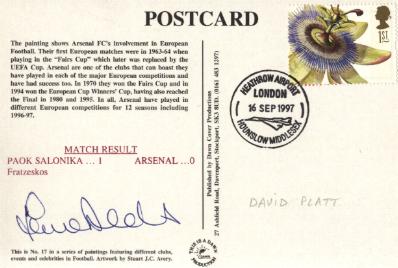 POSTCARD
The painting shows Arsenal FC's involvement in European
Football. Their first European matches were in 1963-64 when
playing in the "Fairs Cup" which later was replaced by the
UEFA Cup. Arsenal are one of the clubs that can boast they
have played in each of the major European competitions and
have had success too. In 1970 they won the Fairs Cup and in
1994 won the European Cup Winners' Cup, having also reached
the Final in 1980 and 1995. In all, Arsenal have played in
different European competitions for 12 seasons including
1996-97.
MATCH RESULT
PAOK SALONIKA ... 1 ARSENAL ...0
Fratzeskos
This is No. 17 in a series of paintings featuring different clubs,
events and celebrities in Football. Artwork by Stuart J.C. Avery.
Published by Dawn Cover Productions
27 Ashfield Road, Davenport, Stockport, SK3 8UD. (0161 483 1297)
THIS IS A DAWN
COVER
PRODUCTION
HEATHROW AIRPORT
LONDON
16 SEP 1997
HOUNSLOW MIDDLESEX
1ST
DAVID PLATT